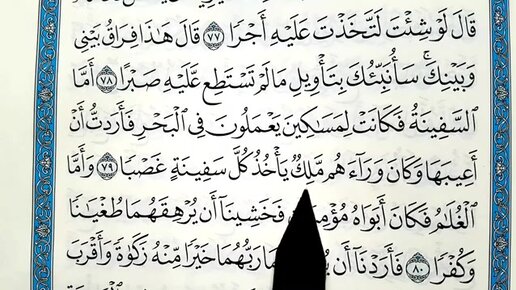 قَالَ لَوْ شِئْتَ لَتَّخَذْتَ عَلَيْهِ أَجْرًا ٧٧ قَالَ هَٰذَا فِرَاقُ بَيْنِي
وَبَيْنِكَ ۚ سَأُنَبِّئُكَ بِتَأْوِيلِ مَا لَمْ تَسْتَطِع عَّلَيْهِ صَبْرًا ٧٨ أَمَّا
السَّفِينَةُ فَكَانَتْ لِمَسَاكِينَ يَعْمَلُونَ فِي الْبَحْرِ فَأَرَدتُّ أَنْ
أَعِيبَهَا وَكَانَ وَرَاءَهُم مَّلِكٌ يَأْخُذُ كُلَّ سَفِينَةٍ غَصْبًا ٧٩ وَأَمَّا
الْغُلَامُ فَكَانَ أَبَوَاهُ فَخَشِينَا أَن يُرْهِقَهُمَا طُغْيَانًا
وَكُفْرًا ٨٠ فَأَرَدْنَا أَن رَبُّهُمَا خَيْرًا مِّنْهُ زَكَوٰةً وَأَقْرَبَ